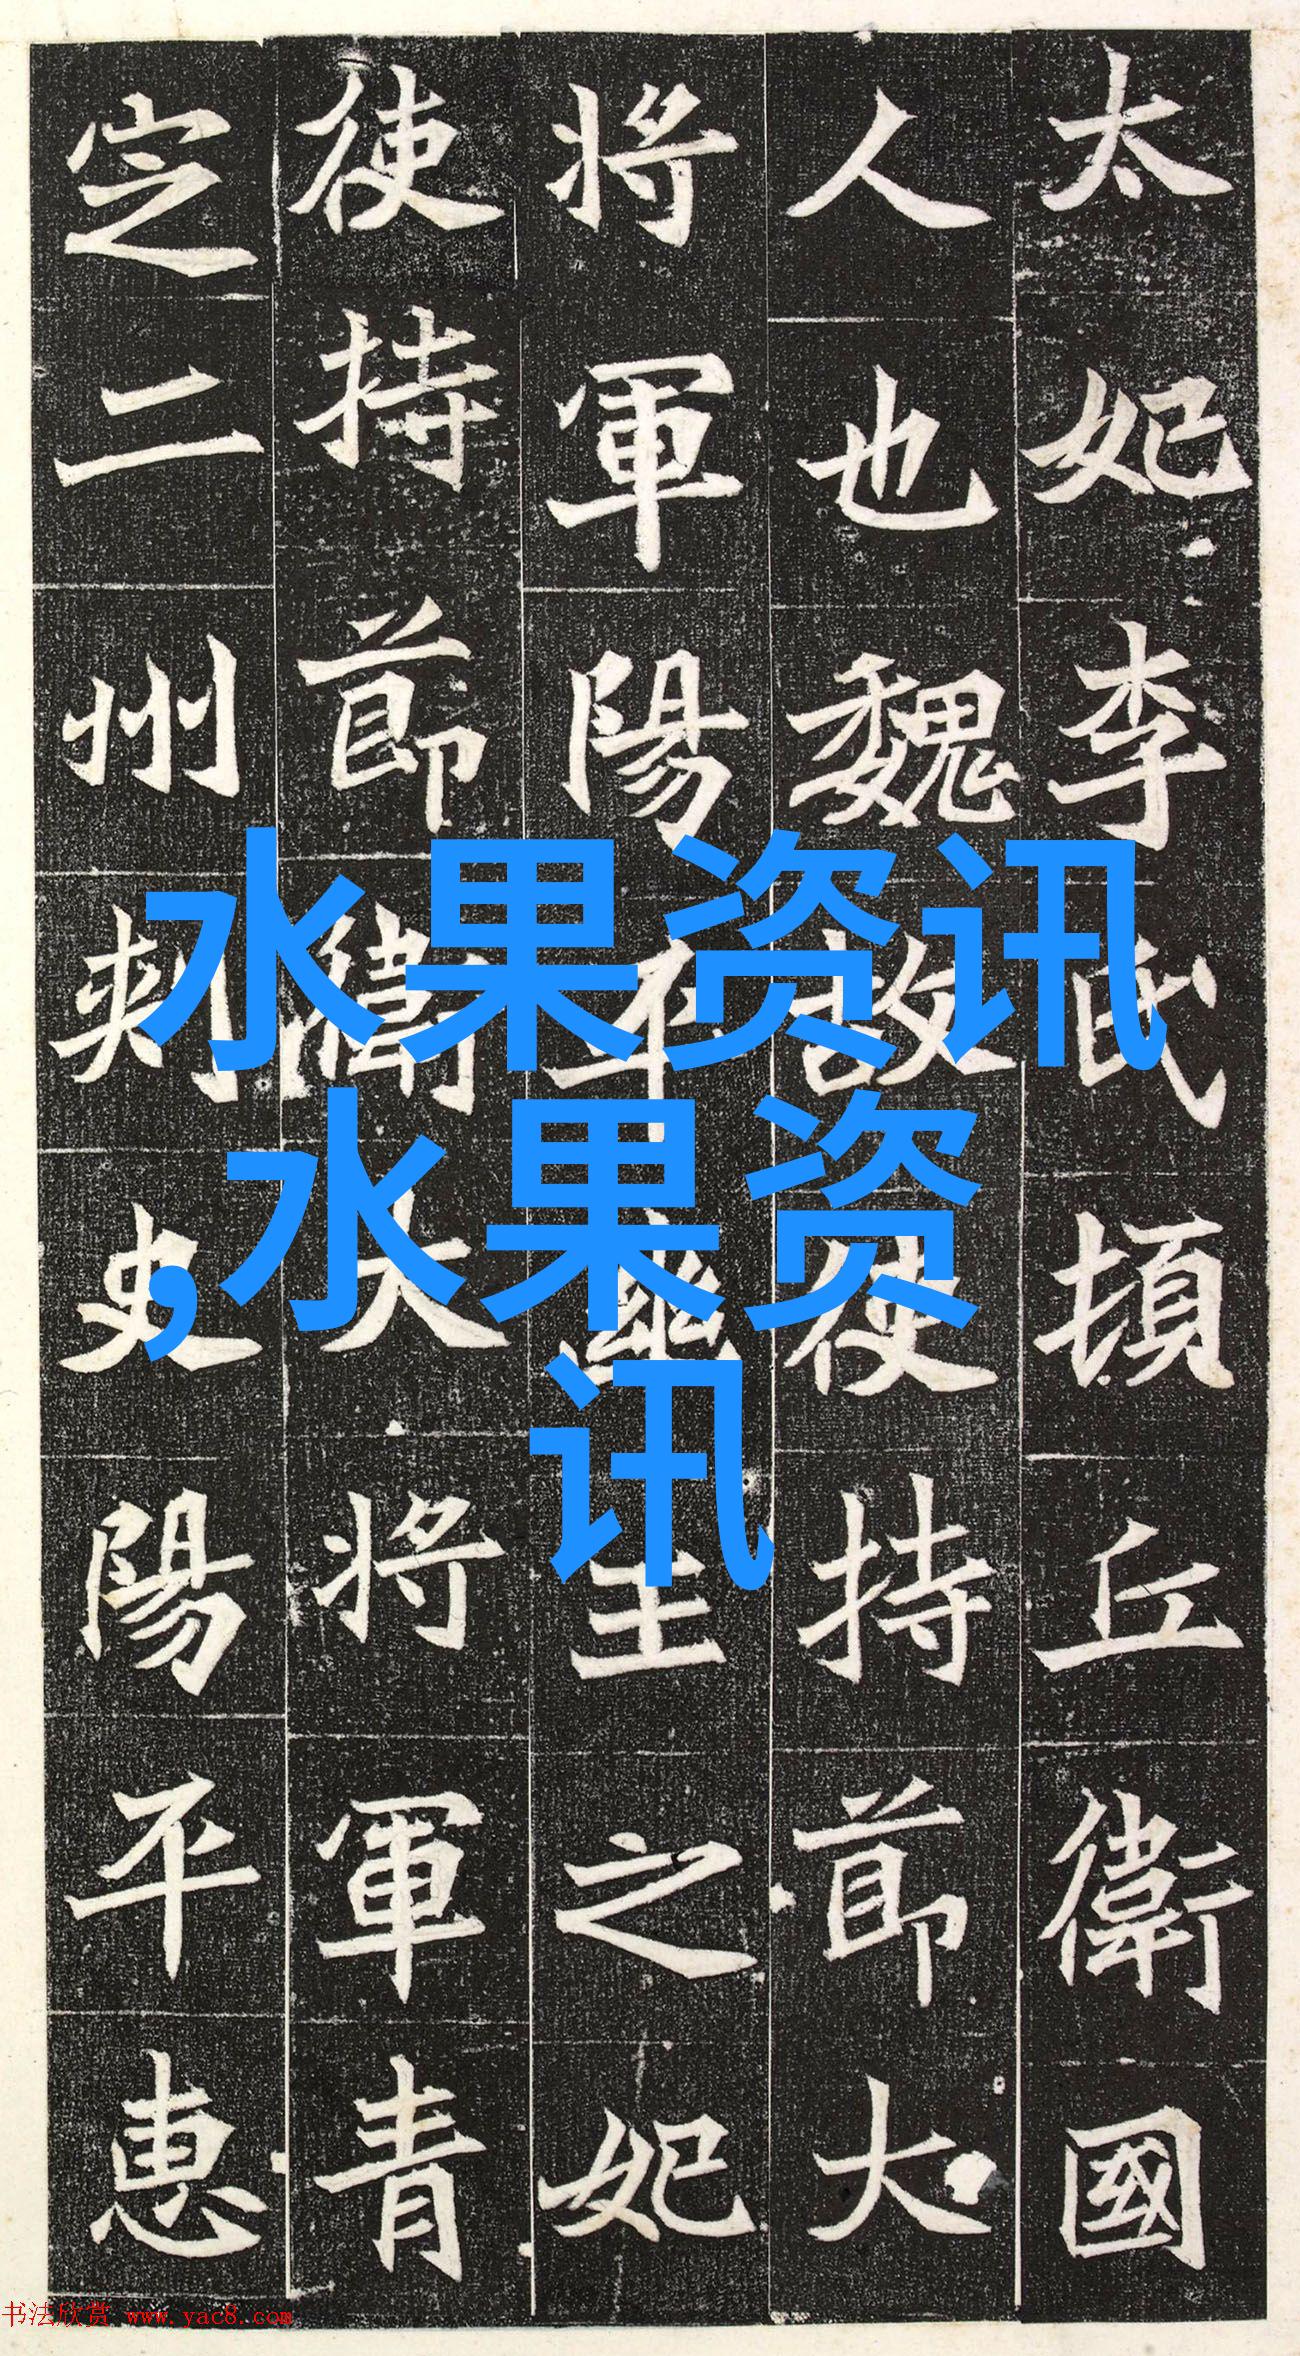 太妃李氏頓丘衛國
人也魏故使持節大
將軍陽平幽王之妃
使持節衛大將軍青
定二州刺史陽平惠
水果资讯
,水果资
讯
书法欣赏 www.yac8.com